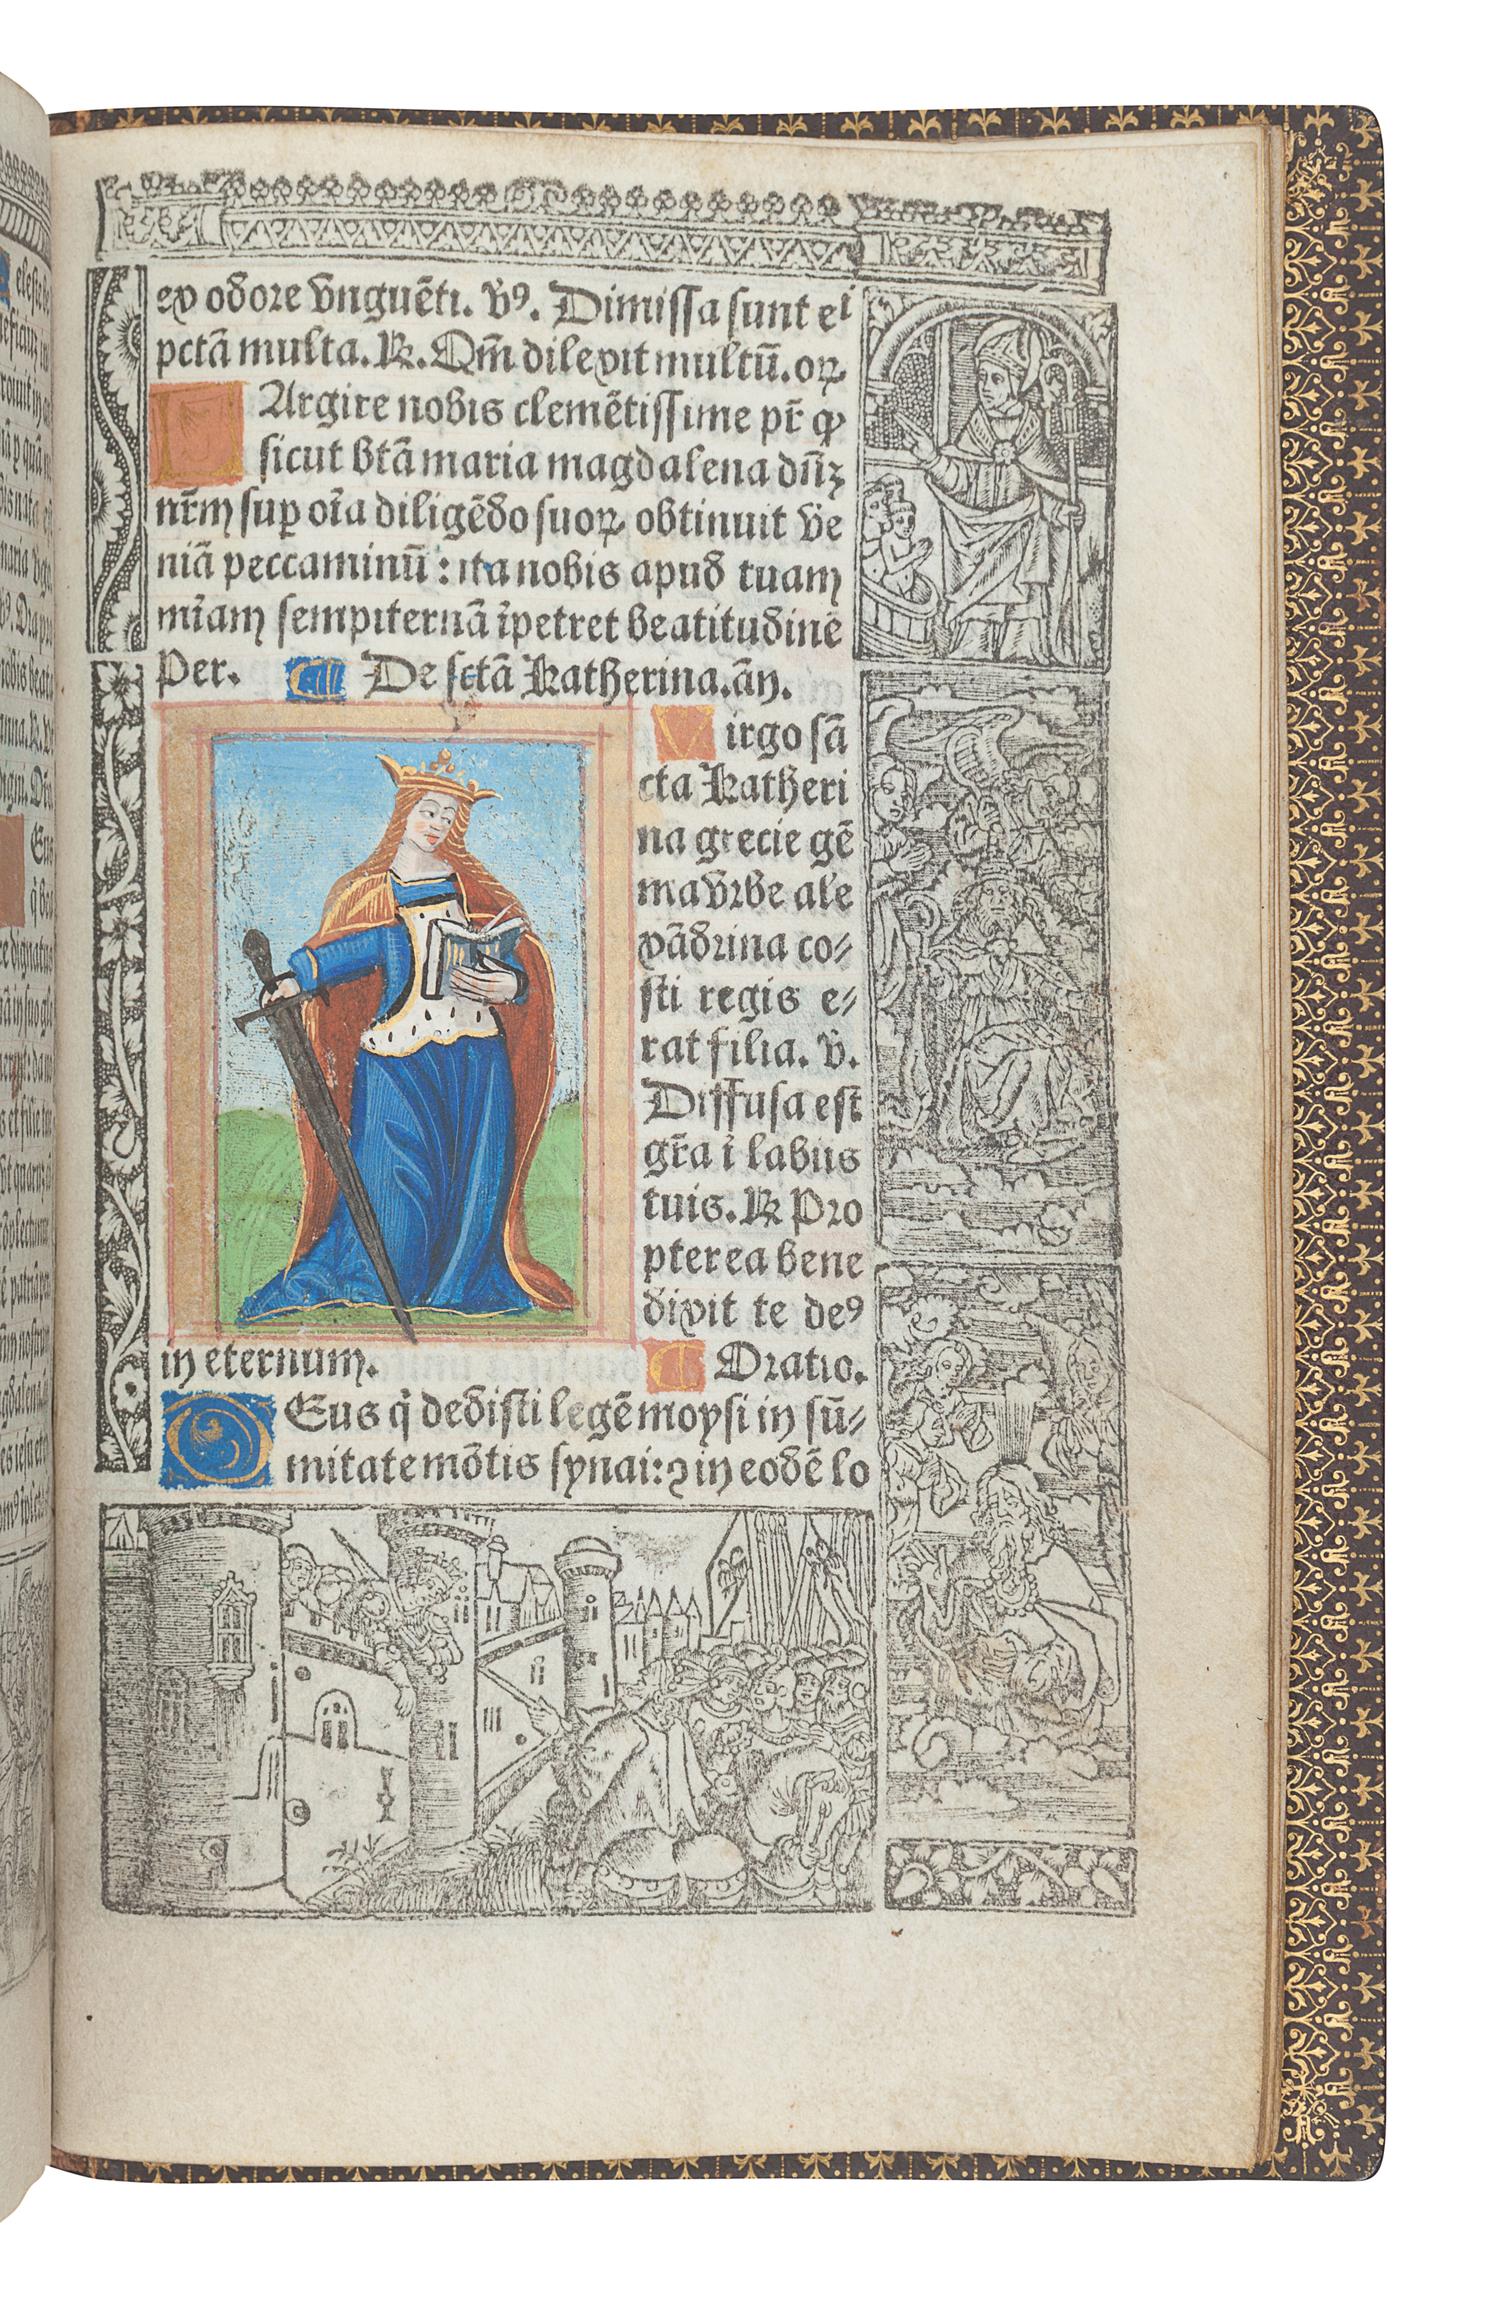 ex odore vnguēti. v̄ꝰ. Dimissa sunt ei
pctā multa. ꝶ. Qm̄ dilexit multū. oꝝ
LArgire nobis clemētissime pr̄ ꝙ
sicut btā maria magdalena dn̄ꝫ
nr̄m sup oīa diligēdo suoꝝ obtinuit ve
niā peccaminū : ita nobis apud tuam
mīam sempiternā īpetret beatitudinē
Per. ¶ De sctā Katherina. añ.
Virgo sā
cta Katheri
na grecie gē
ma vrbe ale
xādrina co⸗
sti regis e⸗
rat filia. v̄.
Diffusa est
gr̄a ī labiis
tuis. ꝶ Pro
pterea bene
dixit te deꝰ
in eternum. ¶ Oratio.
DEus q̇ dedisti legē moysi in sū⸗
mitate mōtis synai: ⁊ in eodē lo